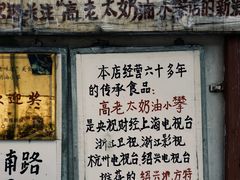 关注"高老太奶油小攀店的新
本店经营六十多年
的传承食品:
高老太奶油小攀
是央视财经上海电视台
浙江卫视,浙江影视,
杭州电视台 绍兴电视台
推荐的 绍兴地方特
奖
南路